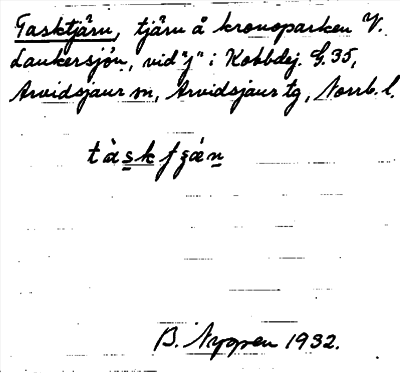 Tasktjärn, tjärn å kronoparken V.
Laukersjön, vid "j" i Kobbdej. G. 35,
Arvidsjaur sn, Arvidsjaur tg, Norrb. l.
B. Nygren 1932.